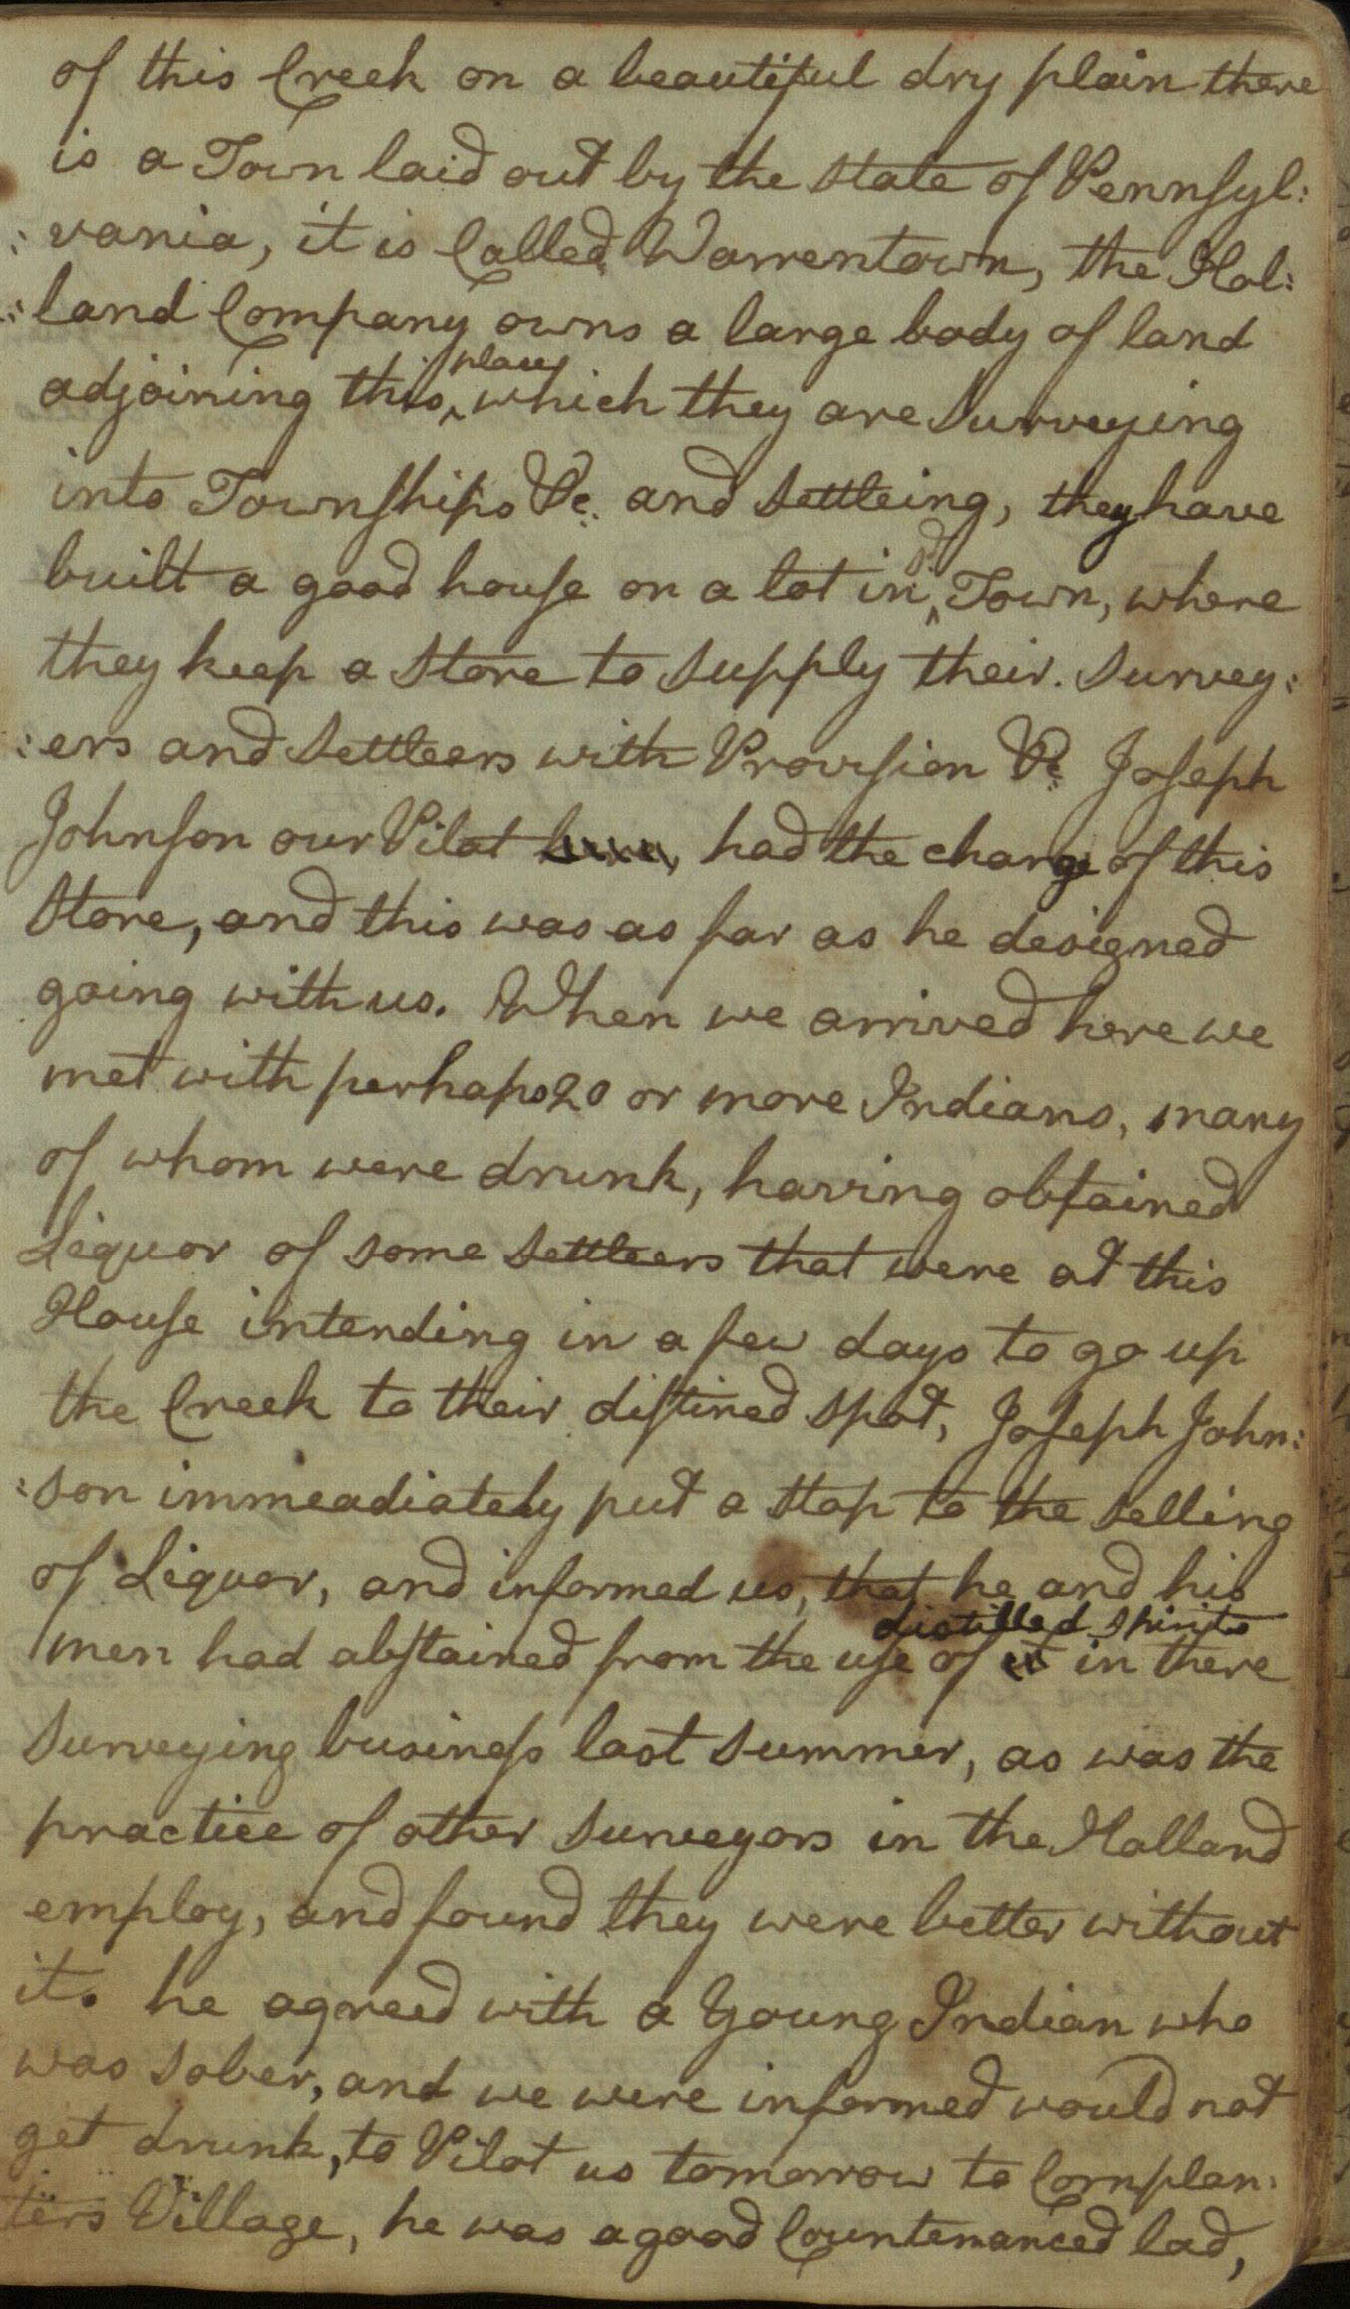 of this Creek on a beautiful dry plain there
is a Town laid out by the State of Pennsyl:
:vania, it is Called Warrentown, the Hol:
:land Company owns a large body of land
adjoining this ^place which they are Surveying
into Townships &c. and Settleing, they have
built a good house on a lot in ^sd. Town, where
they keep a Store to Supply their Survey:
:ers and Settleers with Provision &c. Joseph
Johnson our Pilot had the charge of this
Store, and this was as far as he designed
going with us. When we arrived here we
met with perhaps 20 or more Indians, many
of whom were drunk, having obtained
Liquor of some Settleers that were at this
House intending in a few days to go up
the Creek to their distined spot, Joseph John:
:son immeadiately put a stop to the selling
of Liquor, and informed us, that he and his
distilled spirits
men had abstained from the use of it in there
Surveying business last Summer, as was the
practice of other Surveyors in the Holland
employ, and found they were better without
it. he agreed with a Young Indian who
was sober, and we were informed would not
get drunk, to Pilot us tomorrow to Cornplan:
ters Village, he was a good Countenanced lad,